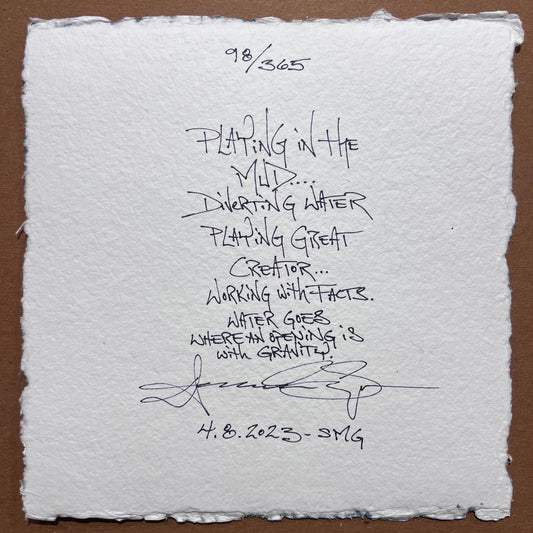 98/365
PLAYING IN THE
MUD....
DIVERTING WATER
PLAYING GREAT
CREATOR...
WORKING WITH FACTS.
WATER GOES
WHERE AN OPENING IS
WITH GRAVITY.
4.8.2023-SMG